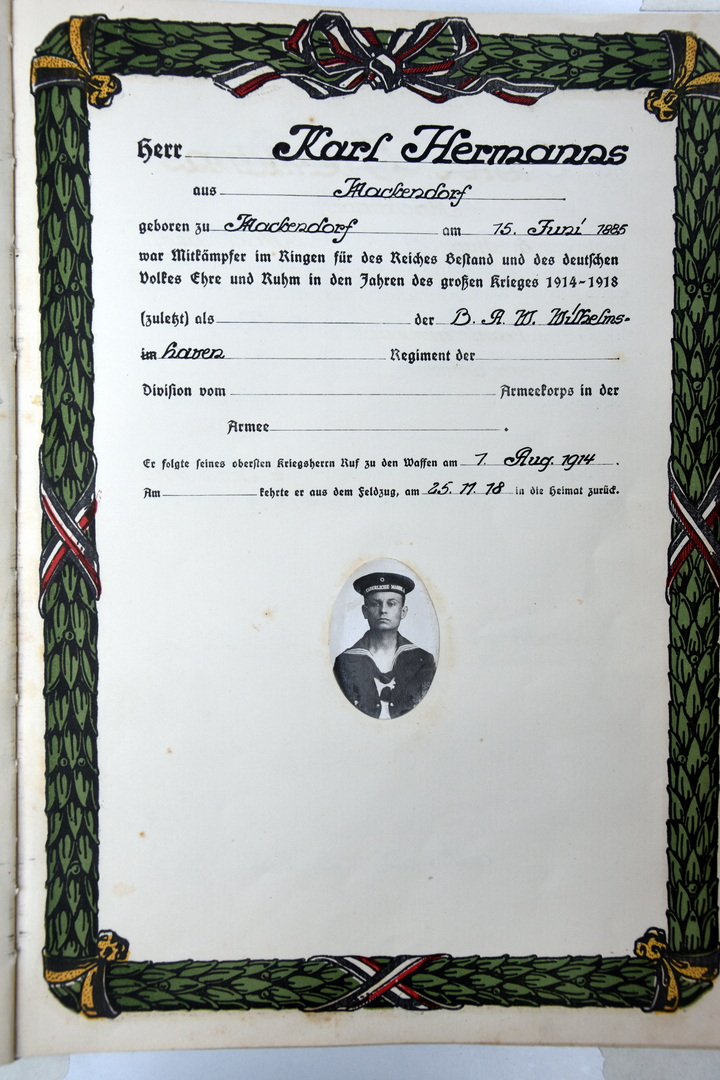 Herr Karl Hermanns
aus Mackendorf
geboren zu Mackendorf am 15. Juni 1885
war Mitkämpfer im Ringen für des Reiches Bestand und des deutschen
Volkes Ehre und Ruhm in den Jahren des großen Krieges 1914-1918
(zuletzt) als der B. A. W. Wilhelms-
im haven Regiment der
Division vom Armeekorps in der
Armee .
Er folgte seines obersten Kriegsherrn Ruf zu den Waffen am 1. Aug. 1914 .
Am kehrte er aus dem Feldzug, am 25. 11. 18 in die Heimat zurück.